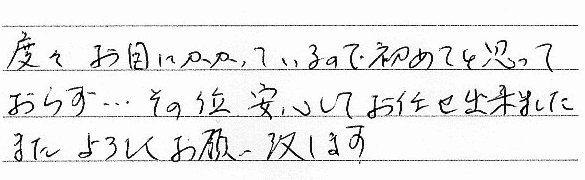 度々お目にかかっているので初めてと思って
おらず…その位安心してお任せ出来ました
またよろしくお願い致します